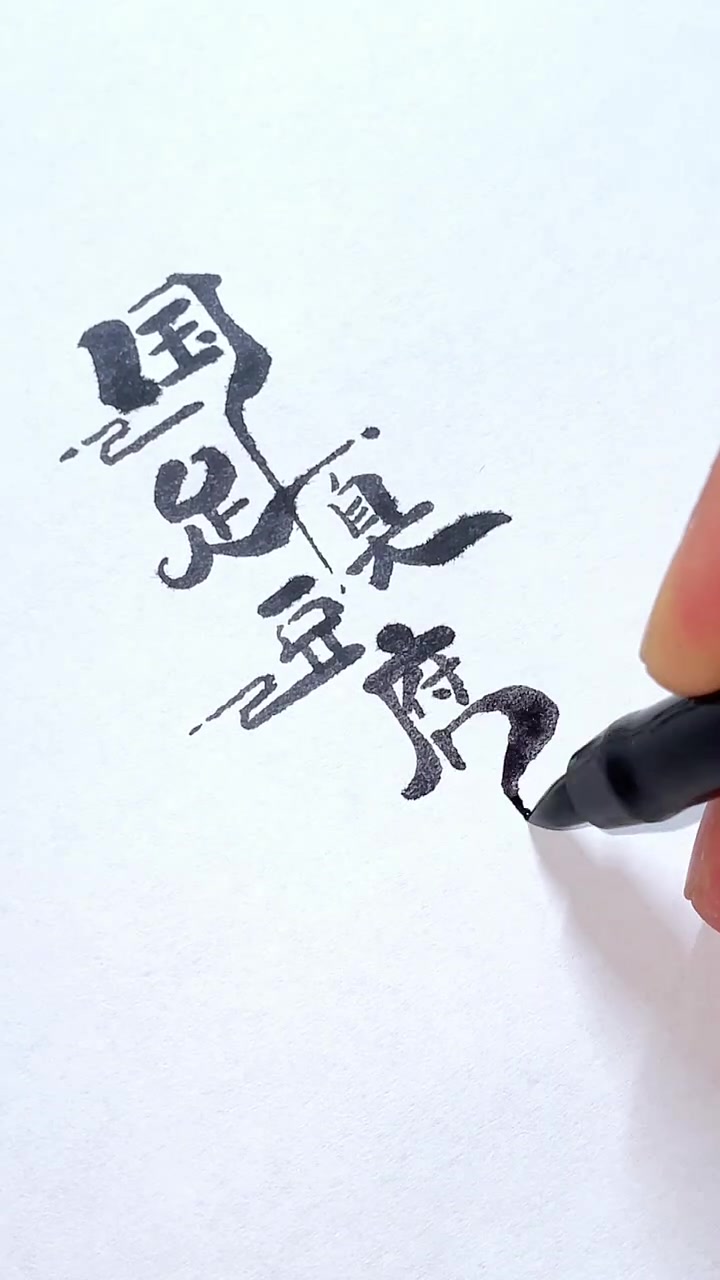 国足臭豆腐